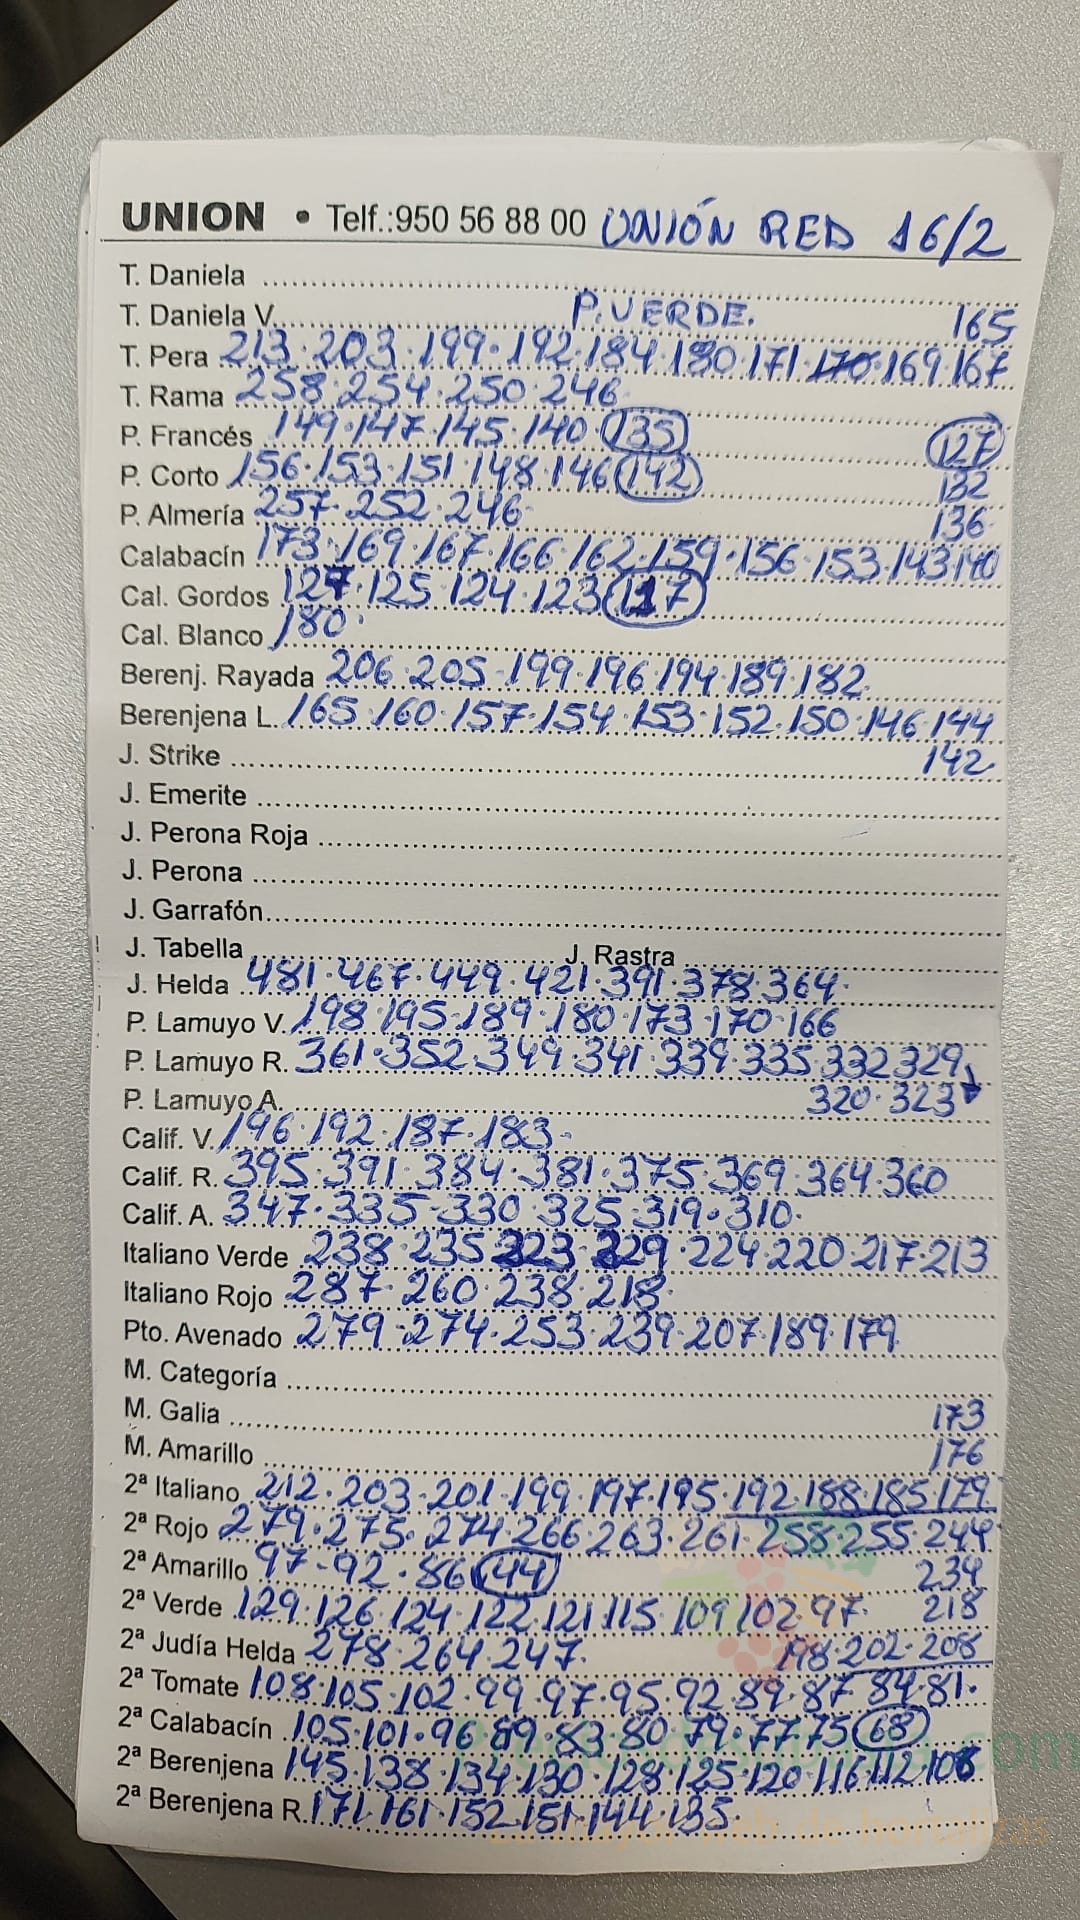 UNION • Telf.:950 56 88 00 UNIÓN RED 16/2
T. Daniela
T. Daniela V. P. VERDE. 165
T. Pera 213·203·199·192·184·180·171·170·169·167
T. Rama 258·254·250·246
P. Francés 149·147·145·140·135 127
P. Corto 156·153·151·148·146 142 132
P. Almería 257·252·246 136
Calabacín 173·169·167·166·162·159·156·153·143·140
Cal. Gordos 127·125·124·123 117
Cal. Blanco 180
Berenj. Rayada 206·205·199·196·194·189·182
Berenjena L. 165·160·157·154·153·152·150·146·144
J. Strike 142
J. Emerite
J. Perona Roja
J. Perona
J. Garrafón
J. Tabella J. Rastra
J. Helda 481·467·449·421·391·378·364
P. Lamuyo V. 198·195·189·180·173·170·166
P. Lamuyo R. 361·352·349·341·339·335·332·329
P. Lamuyo A. 320·323
Calif. V. 196·192·187·183
Calif. R. 395·391·384·381·375·369·364·360
Calif. A. 347·335·330·325·319·310
Italiano Verde 238·235 223 229·224·220·217·213
Italiano Rojo 287·260·238·218
Pto. Avenado 279·274·253·239·207·189·179
M. Categoría
M. Galia 173
M. Amarillo 176
2ª Italiano 212·203·201·199·197·195·192·188·185·179
2ª Rojo 279·275·274·266·263·261·258·255·244
2ª Amarillo 97-92·86 44 234
2ª Verde 129·126·124·122·121·115·109·102·97 218
2ª Judía Helda 278·264·247 198·202·208
2ª Tomate 108·105·102·99·97·95·92·89·87 84·81
2ª Calabacín 105·101·96·89·83·80·79·77·75 68
2ª Berenjena 145·138·134·130·128·125·120·116·112·108
2ª Berenjena R. 171·161·152·151·144·135
.com
de hortalizas